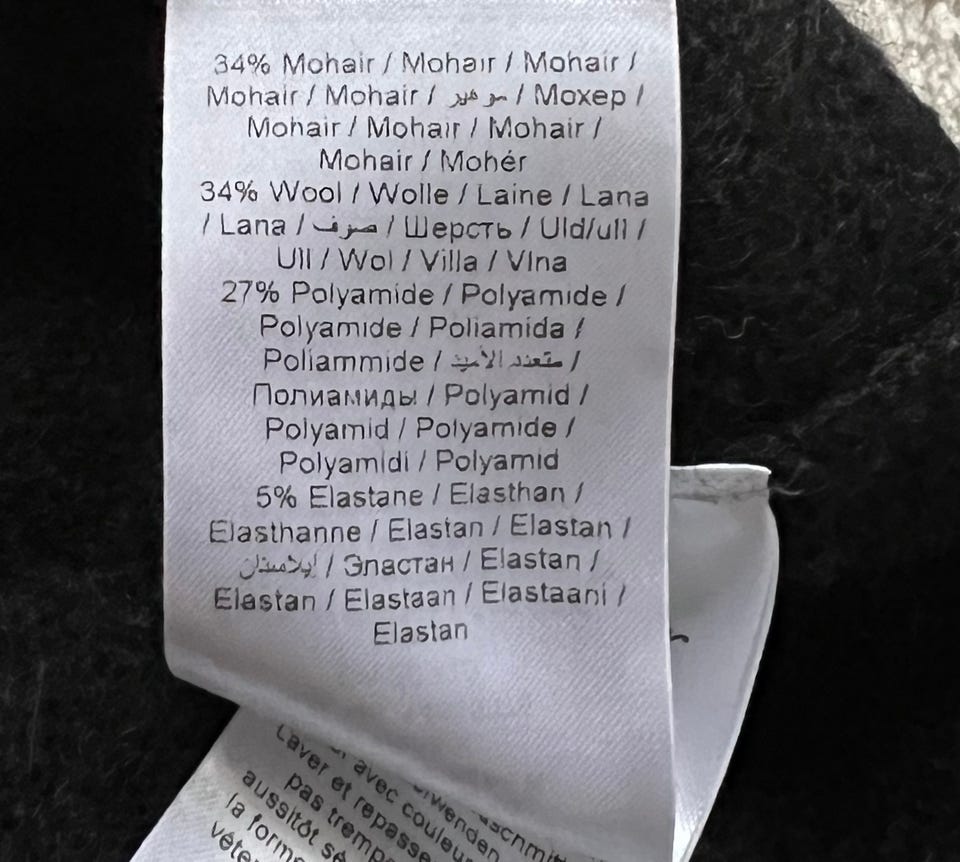 34% Mohair / Mohair / Mohair /
Mohair / Mohair / موهير / Мохер /
Mohair / Mohair / Mohair /
Mohair / Mohér
34% Wool / Wolle / Laine / Lana
/ Lana / صوف / Шерсть / Uld/ull /
Ull / Wol / Villa / Vlna
27% Polyamide / Polyamide /
Polyamide / Poliamida /
Poliammide / متعدد الأميد /
Полиамиды / Polyamid /
Polyamid / Polyamide /
Polyamidi / Polyamid
5% Elastane / Elasthan /
Elasthanne / Elastan / Elastan /
/ Эластан / Elastan /
Elastan / Elastaan / Elastaani /
Elastan
avec couleur
Laver et repasse
pas tremp
aussitôt sé
la forme
vête